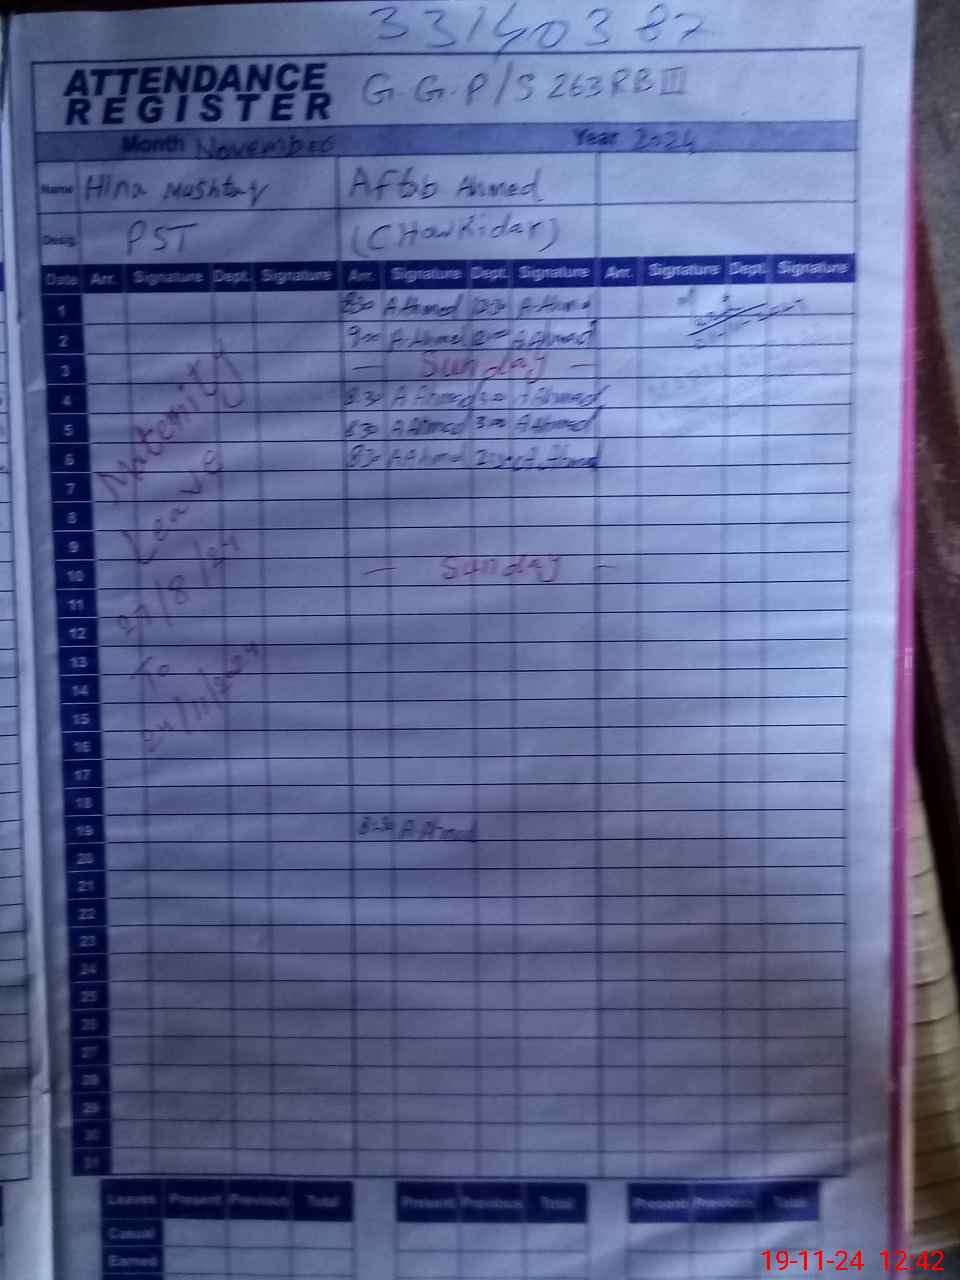 33140387
ATTENDANCE REGISTER
G.G.P/S 263 RB III
Month November Year 2024
Name Hina Mushtaq Aftab Ahmed
Desig. PST (CHowKidar)
Date Arr. Signature Dept. Signature Arr. Signature Dept. Signature Arr. Signature Dept. Signature
1 8:30 A Ahmed 12:30 A Ahmed
2 9:00 A Ahmed A Ahmed
3 — Sunday —
4 8:30 A Ahmed A Ahmed
5 8:30 A Ahmed 3:00 A Ahmed
6 8:30 A Ahmed A Ahmed
7
8
9
10 — Sunday —
11
12
13
14
15
16
17
18
19 8:30 A Ahmed
20
21
22
23
24
25
26
27
28
29
30
31
Maternity
Leave
27/8/24
To
24/11/2024
Leaves Present Previous Total Present Previous Total Present Previous Total
Casual
Earned
19-11-24 12:42